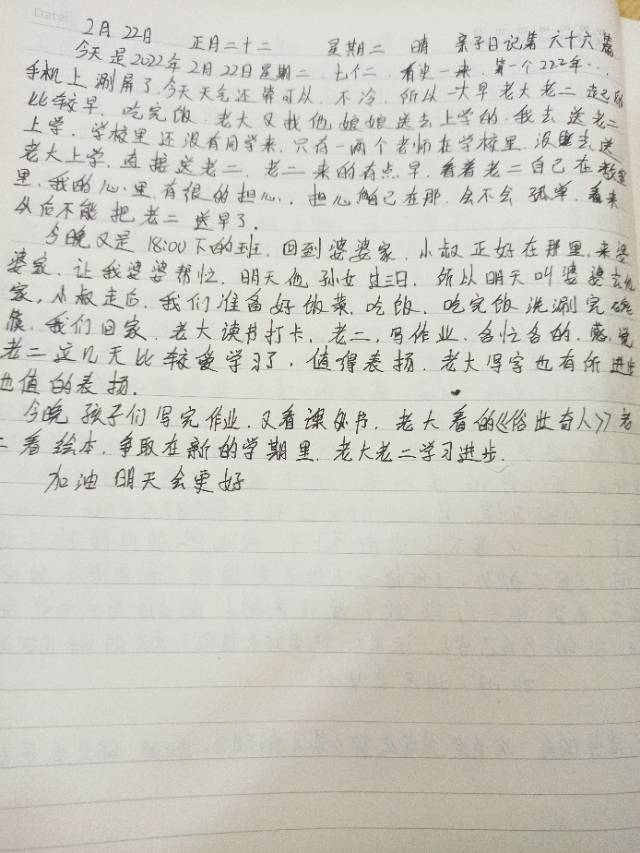 Date:
2月22日 正月二十二 星期二 晴 亲子日记第六十六篇
今天是2022年2月22日星期二, 七个二, 有史一来, 第一个222年...
手机上涮屏了, 今天天气还算可以, 不冷, 所以一大早老大老二起的
比较早, 吃完饭, 老大又我他娘娘送去上学的, 我去送老二
上学, 学校里还没有同学来, 只有一两个老师在学校里, 没去送
老大上学, 直接送老二, 老二来的有点早, 看着老二自己在教室
里, 我的心里有很的担心, 担心自己在那, 会不会孤单, 看来
以后不能把老二送早了.
今晚又是18:00下的班, 回到婆婆家, 小叔正好在那里, 来婆
婆家, 让我婆婆帮忙, 明天他孙女过三日, 所以明天叫婆婆去他
家, 小叔走后, 我们准备好饭菜, 吃饭, 吃完饭洗涮完
我们回家, 老大读书打卡, 老二, 写作业, 各忙各的, 感觉
老二这几天比较爱学习了, 值得表扬, 老大写字也有所进步
也值的表扬.
今晚孩子们写完作业, 又看课外书, 老大看的《俗世奇人》老
二看绘本, 争取在新的学期里, 老大老二学习进步.
加油 明天会更好